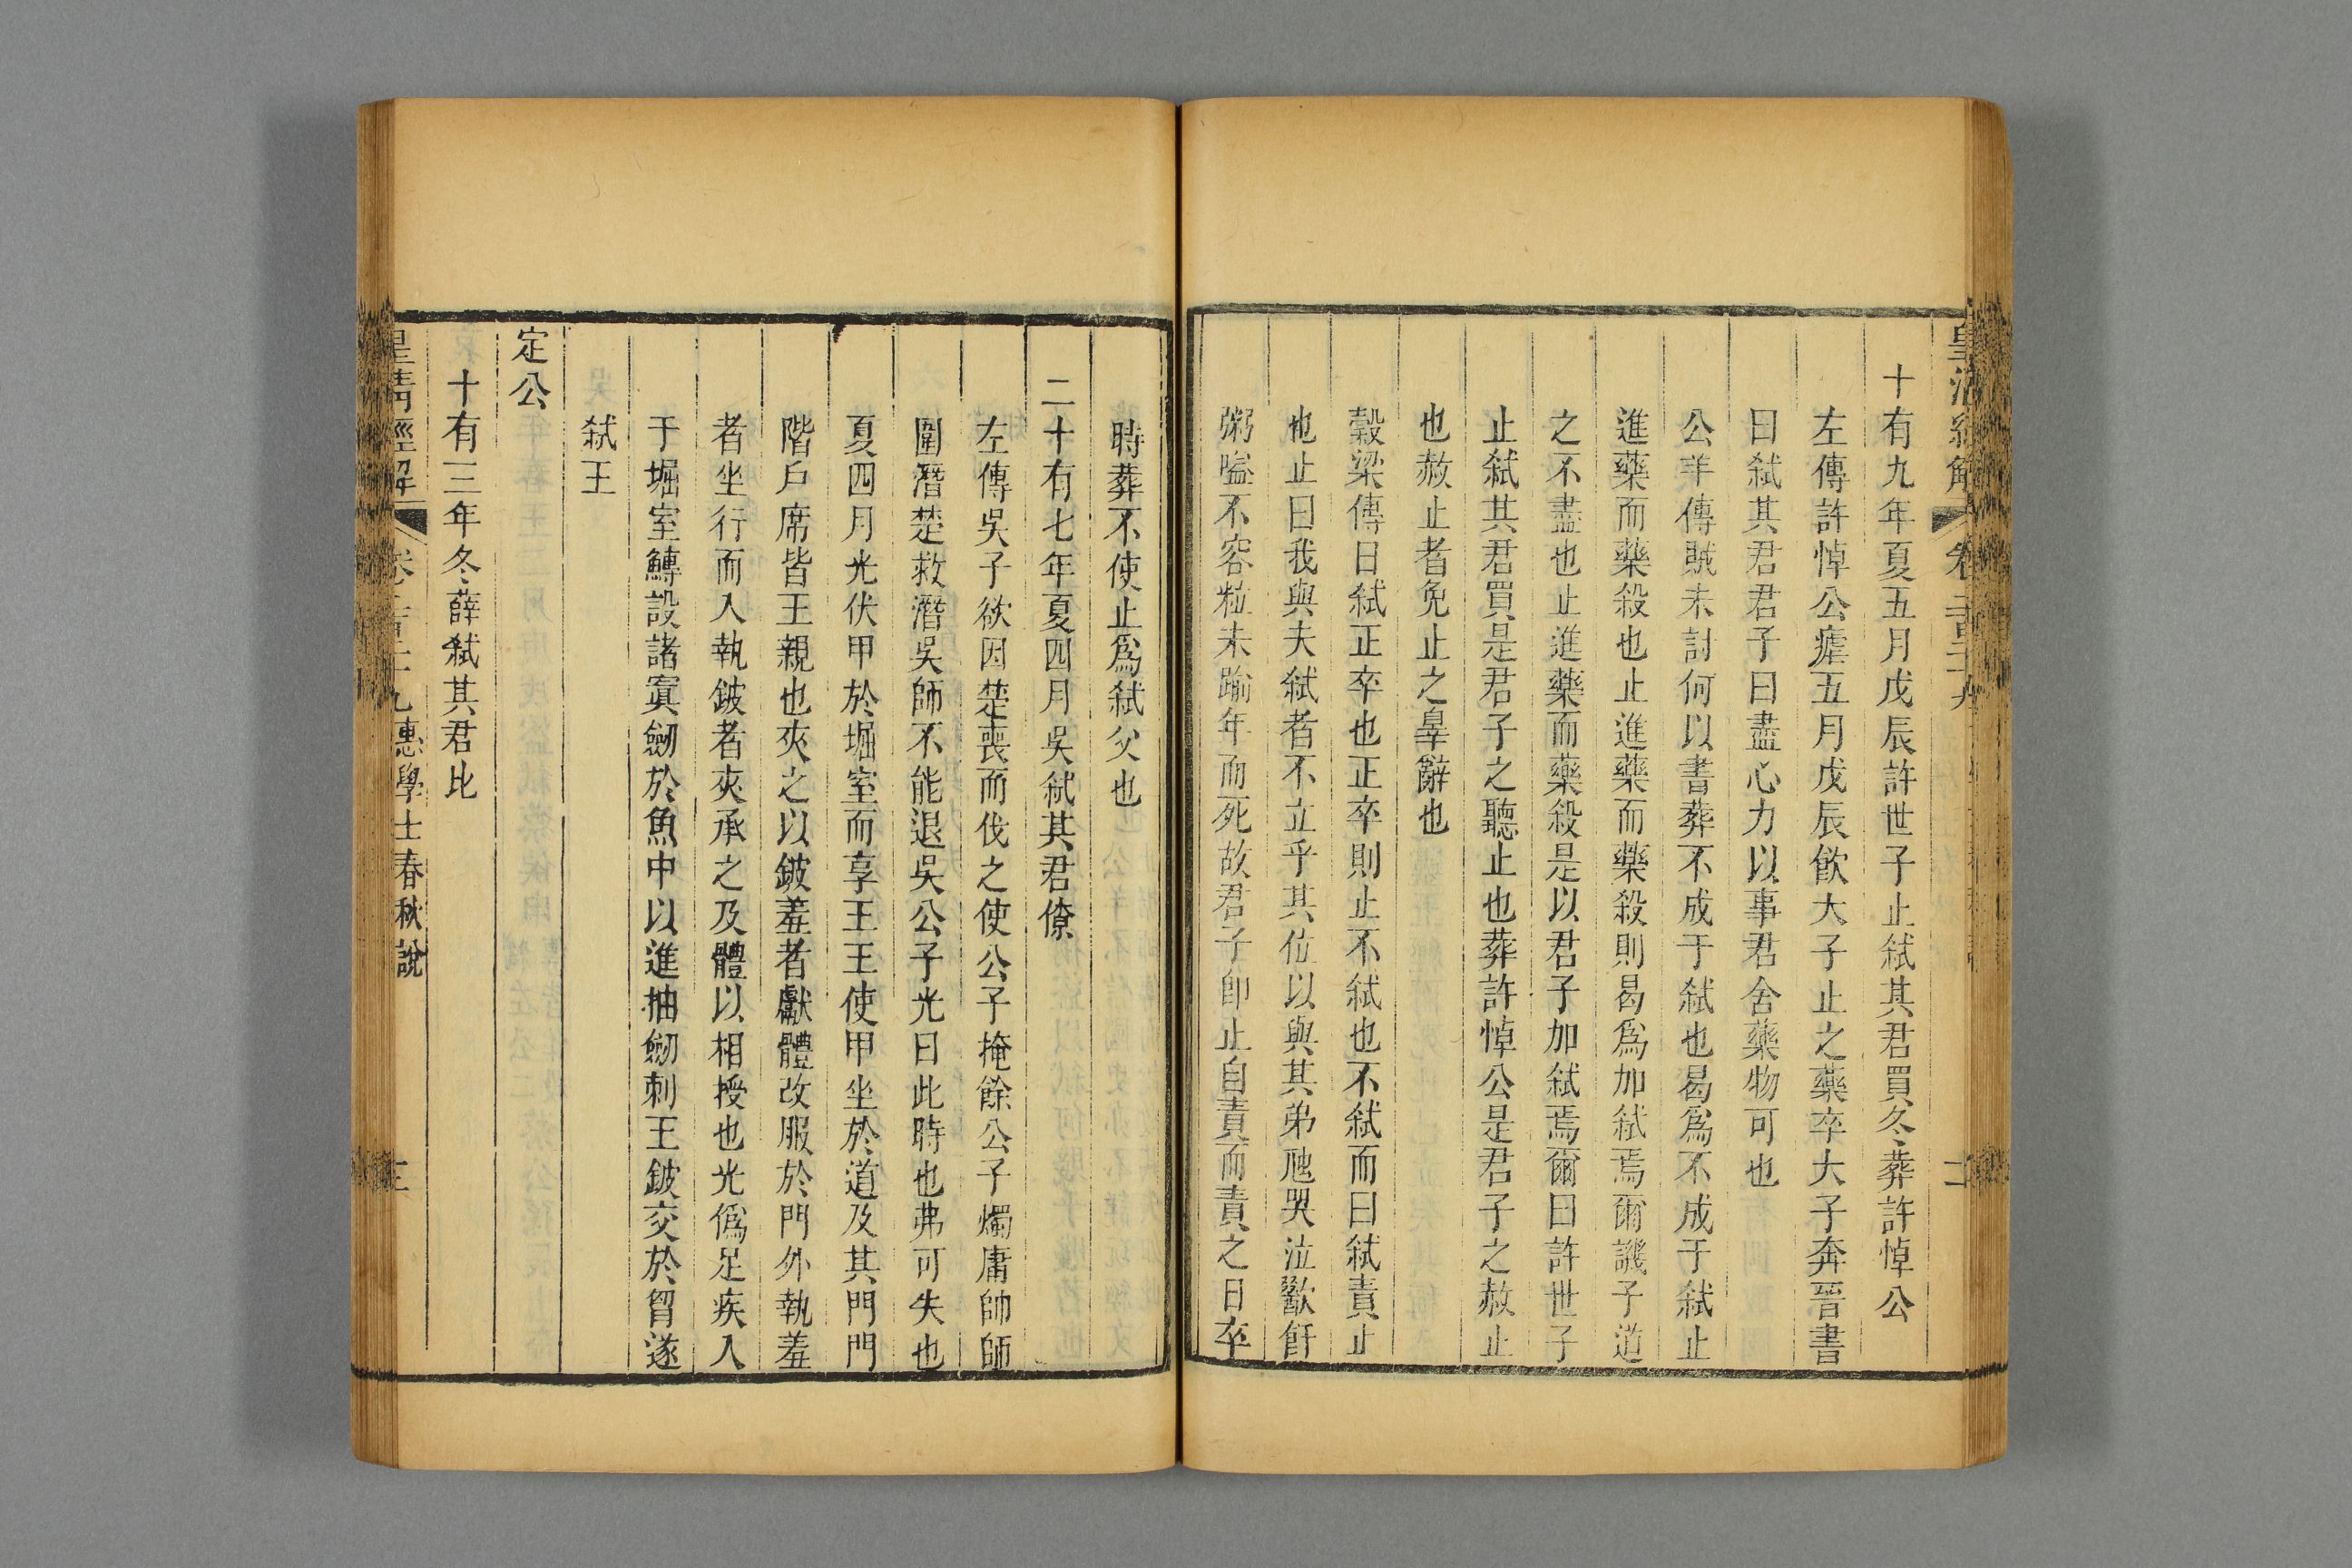 皇清經解 卷二百二十九 二
十有九年夏五月戊辰許世子止弒其君買冬葬許悼公
左傳許悼公瘧五月戊辰飮大子止之藥卒大子奔晉書
曰弒其君君子曰盡心力以事君舍藥物可也
公羊傳賊未討何以書葬不成于弒也曷爲不成于弒止
進藥而藥殺也止進藥而藥殺則曷爲加弒焉爾譏子道
之不盡也止進藥而藥殺是以君子加弒焉爾曰許世子
止弒其君買是君子之聽止也葬許悼公是君子之赦止
也赦止者免止之辠辭也
穀梁傳曰弒正卒也正卒則止不弒也不弒而曰弒責止
也止曰我與夫弒者不立乎其位以與其弟虺哭泣歠飦
粥嗌不容粒未踰年而死故君子卽止自責而責之日卒
時葬不使止爲弒父也
二十有七年夏四月吳弒其君僚
左傳吳子欲因楚喪而伐之使公子掩餘公子燭庸帥師
圍潛楚救潛吳師不能退吳公子光曰此時也弗可失也
夏四月光伏甲於堀室而享王王使甲坐於道及其門門
階戶席皆王親也夾之以鈹羞者獻體改服於門外執羞
者坐行而入執鈹者夾承之及體以相授也光僞足疾入
于堀室鱄設諸寘劒於魚中以進抽劒刺王鈹交於胷遂
弒王
定公
十有三年冬薛弒其君比
皇清經解 卷二百二十九惠學士春秋說 三